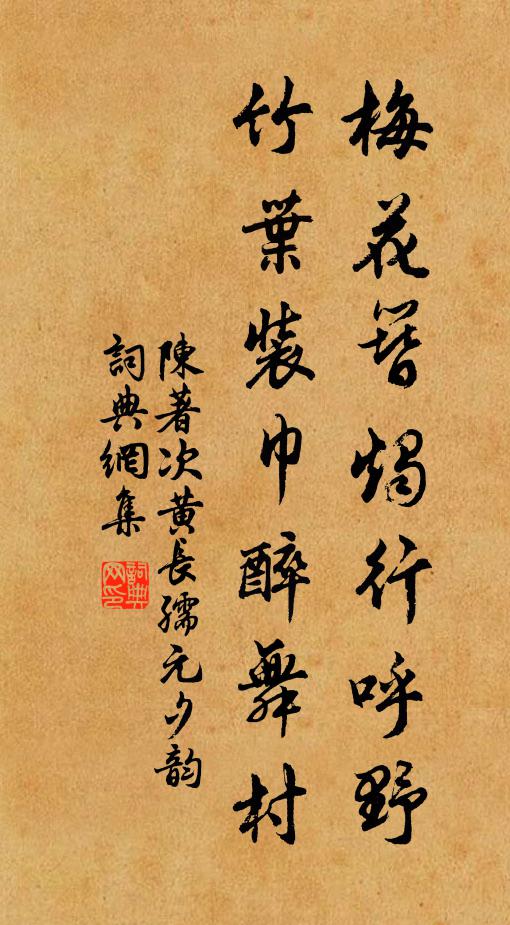 梅花簪燭行呼野
竹葉裝巾醉舞村
陳著次黃長孺元夕韵
詞典網集
詞典網印